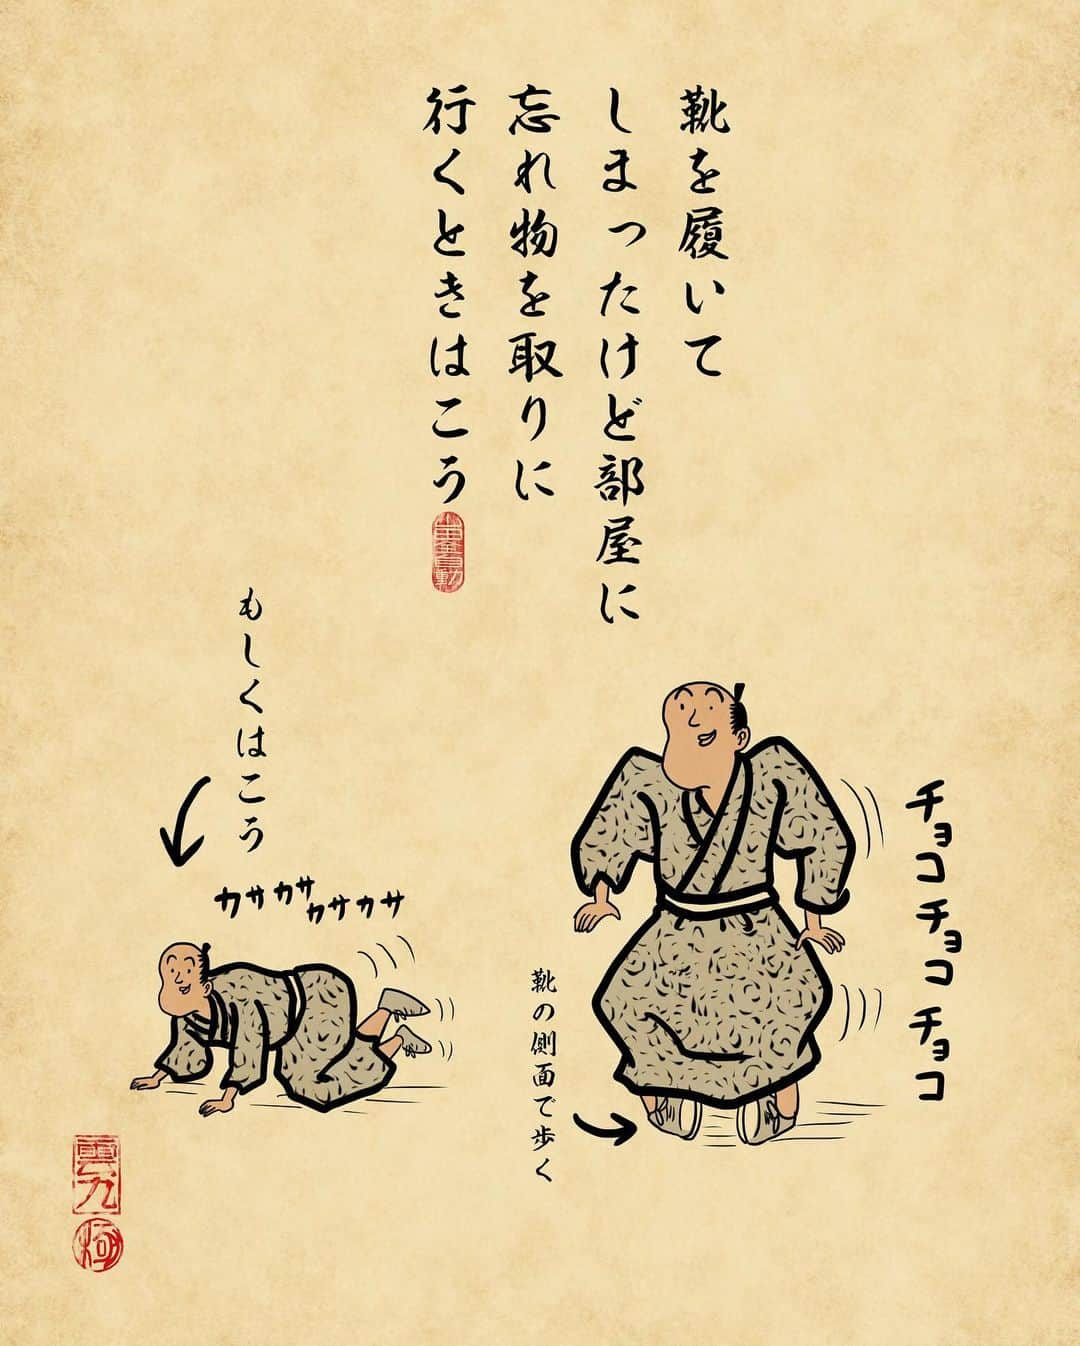 靴を履いて
しまったけど部屋に
忘れ物を取りに
行くときはこう
もしくはこう
カサカサ
カサカサ
靴の側面で歩く
チョコ
チョコ
チョコ